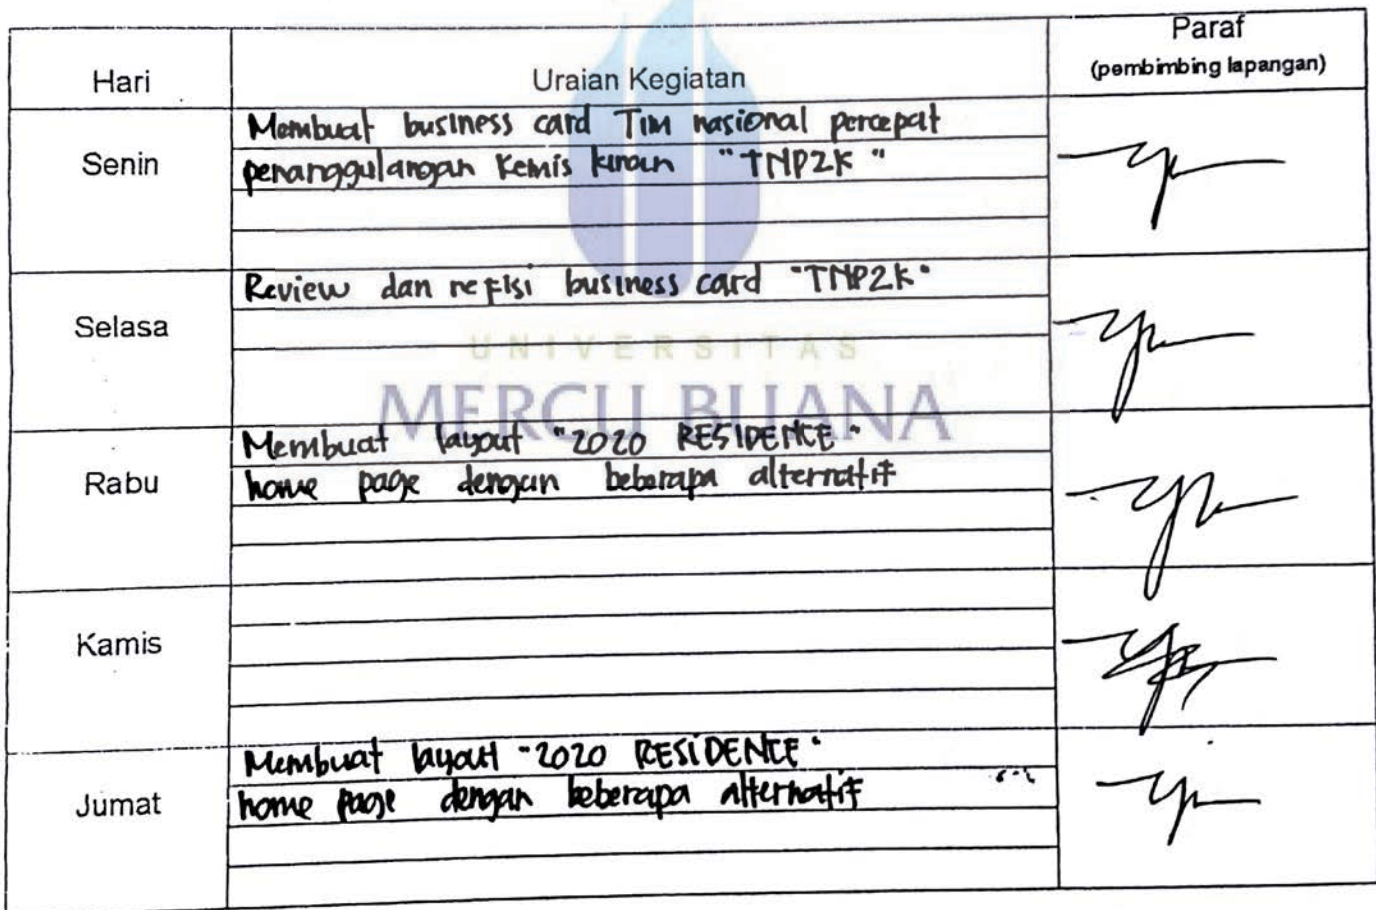 Hari Uraian Kegiatan Paraf
(pembimbing lapangan)
Senin
Membuat business card Tim nasional percepat
penanggulangan Kemis kinan "TNP2K"
Selasa
Review dan refisi business card "TNP2K"
UNIVERSITAS
MERCU BUANA
Rabu
Membuat layout "2020 RESIDENCE"
home page dengan beberapa alternatif
Kamis
Jumat
Membuat layout "2020 RESIDENCE"
home page dengan beberapa alternatif